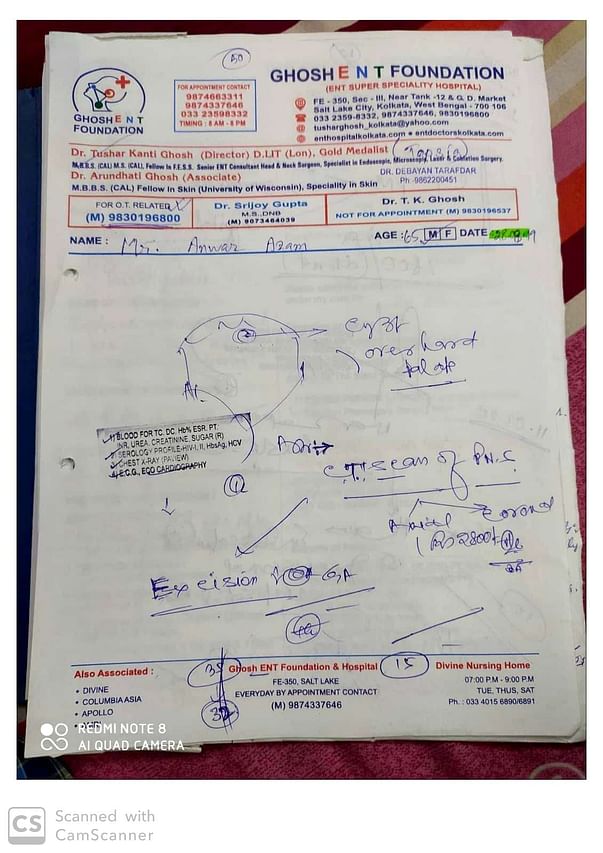 50
GHOSH E N T FOUNDATION
(ENT SUPER SPECIALITY HOSPITAL)
FE - 350, Sec - III, Near Tank -12 & G. D. Market
Salt Lake City, Kolkata, West Bengal - 700 106
033 2359-8332, 9874337646, 9830196800
tusharghosh_kolkata@yahoo.com
enthospitalkolkata.com • entdoctorskolkata.com
GHOSH E N T
FOUNDATION
FOR APPOINTMENT CONTACT
9874663311
9874337646
033 23598332
TIMING : 8 AM - 8 PM
Dr. Tushar Kanti Ghosh (Director) D.LIT (Lon), Gold Medalist
M.B.B.S. (CAL) M.S. (CAL), Fellow In F.E.S.S. Senior ENT Consultant Head & Neck Surgeon, Specialist in Endoscopic, Microscopic, Laser & Coblation Surgery.
Dr. Arundhati Ghosh (Associate)
M.B.B.S. (CAL) Fellow in Skin (University of Wisconsin), Speciality in Skin
DR. DEBAYAN TARAFDAR
Ph -9862200451
FOR O.T. RELATED
(M) 9830196800
Dr. Srijoy Gupta
M.S.,DNB
(M) 9073464039
Dr. T. K. Ghosh
NOT FOR APPOINTMENT (M) 9830196537
NAME : Mr. Anwar Azam AGE : 65 M F DATE
Cyst
over hard
palate
1) BLOOD FOR TC, DC, Hb% ESR, PT.
INR, UREA, CREATININE, SUGAR (R)
SEROLOGY PROFILE-HIV-I, II, HbsAg, HCV
CHEST X-RAY (PA VIEW)
E.C.G., ECO CARDIOGRAPHY
C.T. Scan of P.N.S
Axial Coronal
Excision GA
Also Associated :
• DIVINE
• COLUMBIAASIA
• APOLLO
35
Ghosh ENT Foundation & Hospital
FE-350, SALT LAKE
EVERYDAY BY APPOINTMENT CONTACT
(M) 9874337646
15
Divine Nursing Home
07:00 P.M - 9:00 P.M
TUE, THUS, SAT
Ph. : 033 4015 6890/6891
REDMI NOTE 8
AI QUAD CAMERA
CS Scanned with
CamScanner